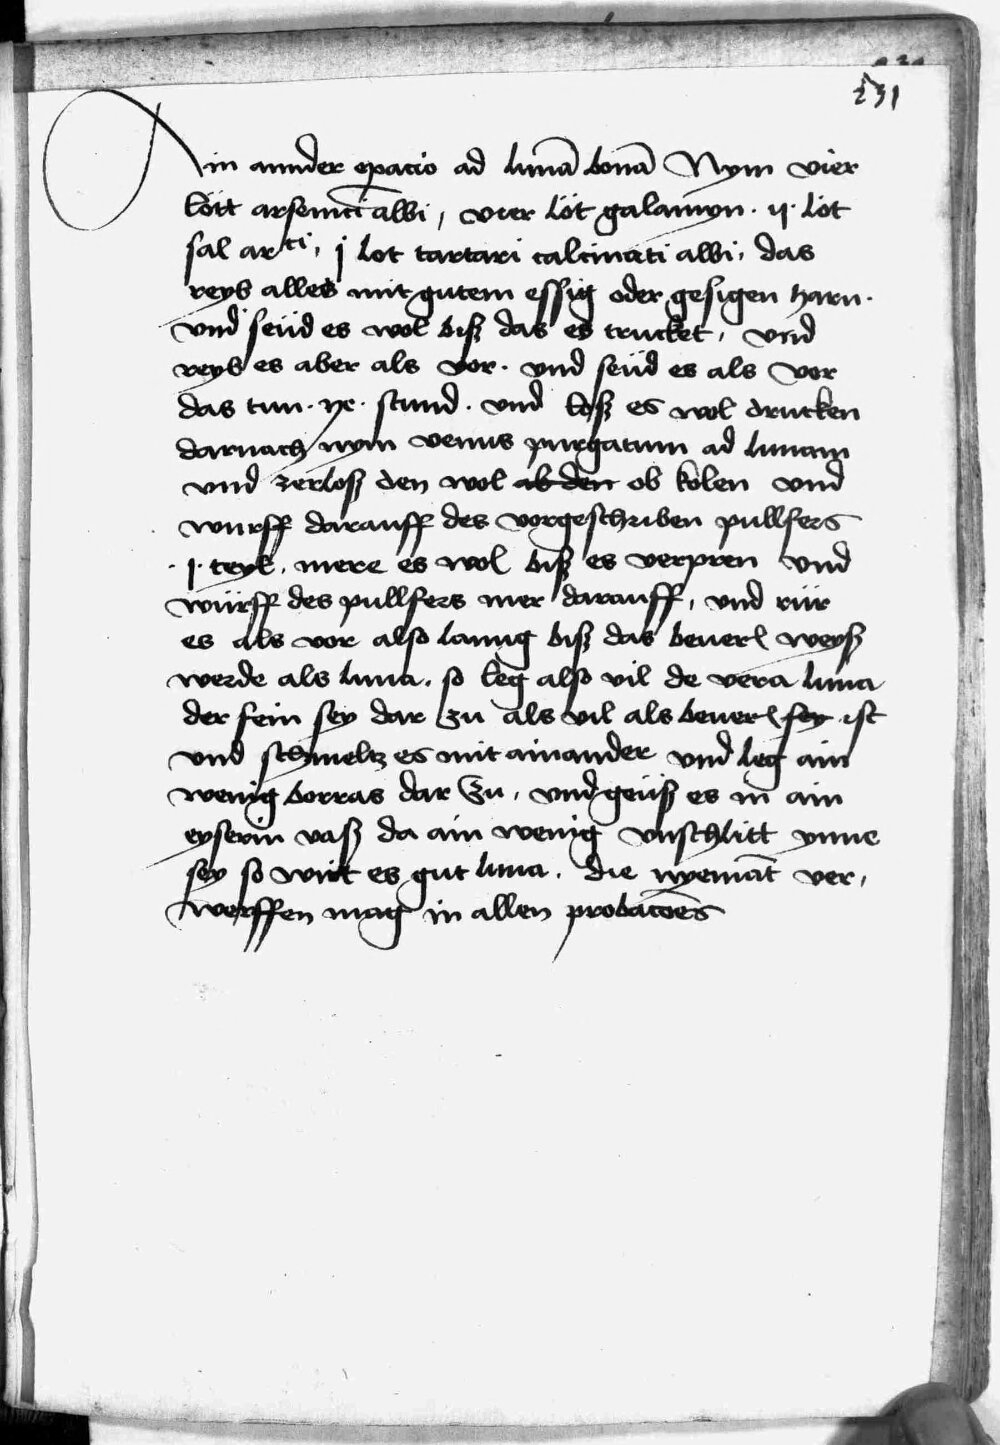 231
Ain annder opacio ad lunā bonā Nym vier
lott arsenici albi, vier lot galamyn. ij. lot
sal arti, j lot tartari calcinati albi, das
reyb alles mit gutem essig oder gesigen harn.
vnd seud es wol bisz das es trucket, vnd
reyb es aber als vor. vnd seud es als vor
das tun. ix. stund. vnd losz es wol drucken
darnach nym venus purgatum ad lunam
vnd zerlosz den wol ab den ob kolen vnd
wurff darauff des vorgeschriben pullfers
.j. teyl. mere es wol bisz es verpren vnd
würff des pullfers mer darauff, vnd rür
es als vor also lanng bisz das weysz
werde als luna. so leg also vil de vera luna
der fein sey dar zu als vil als sey ist
vnd schmeltz es mit ainander vnd leg ain
wenig borras dar zu, vnd geüsz es in ain
eyserin vasz da ain wenig vnschlitt ynne
sey so wirt es gut luna. die nyemāt ver,
werffen mag in allen probacoēs